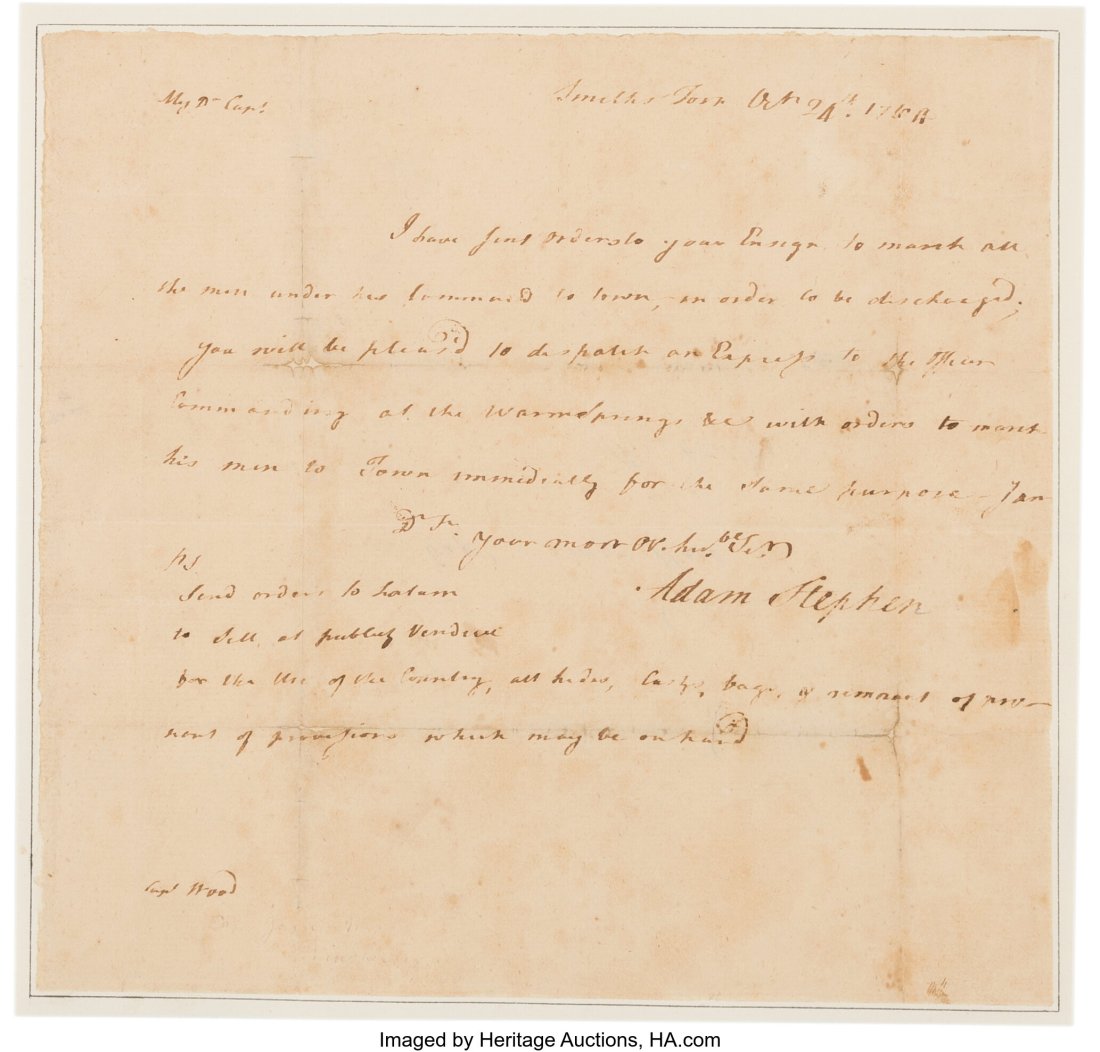 My Dr Capt
Octr 24th. 17
I have sent orders to your Ensign to march all
the men under his Command to town, in order to be discharged;
you will be pleas'd to despatch an Express to the Officer
Commanding at the Warm Springs &c with orders to march
his men to Town immidiatly for the Same purpose - I am
Dr Sr.
your most Ob. hu.ble Ser
Adam Stephen
PS
Send orders to
to Sell at publick Vendue
for the Use of the Country, all hides, Casks, bags, or remnant of prov-
of provisions which may be on hand
Capt Wood
Imaged by Heritage Auctions, HA.com